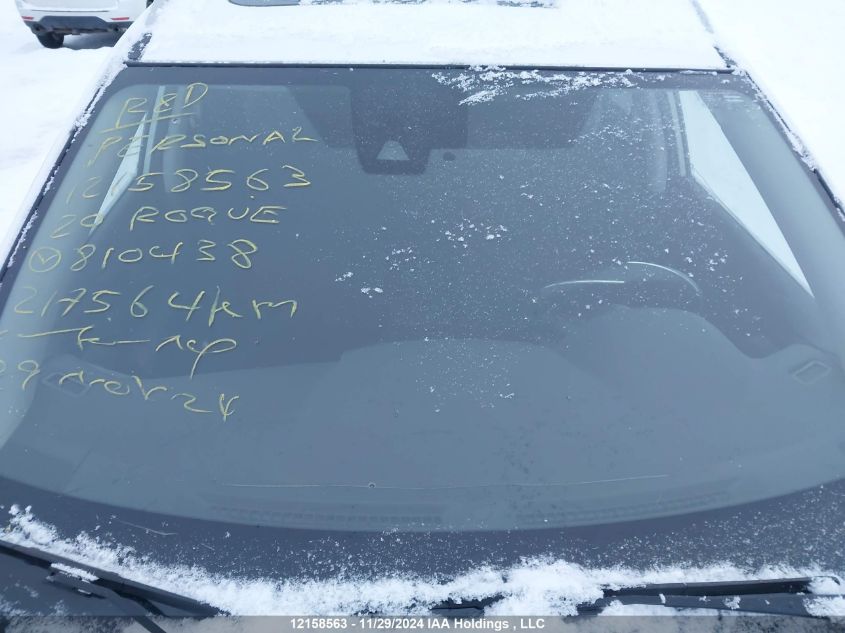 R&D
PERSONAL
12158563
20 ROGUE
V 810438
217564km
29 NOV 24
12158563 - 11/29/2024 IAA Holdings , LLC